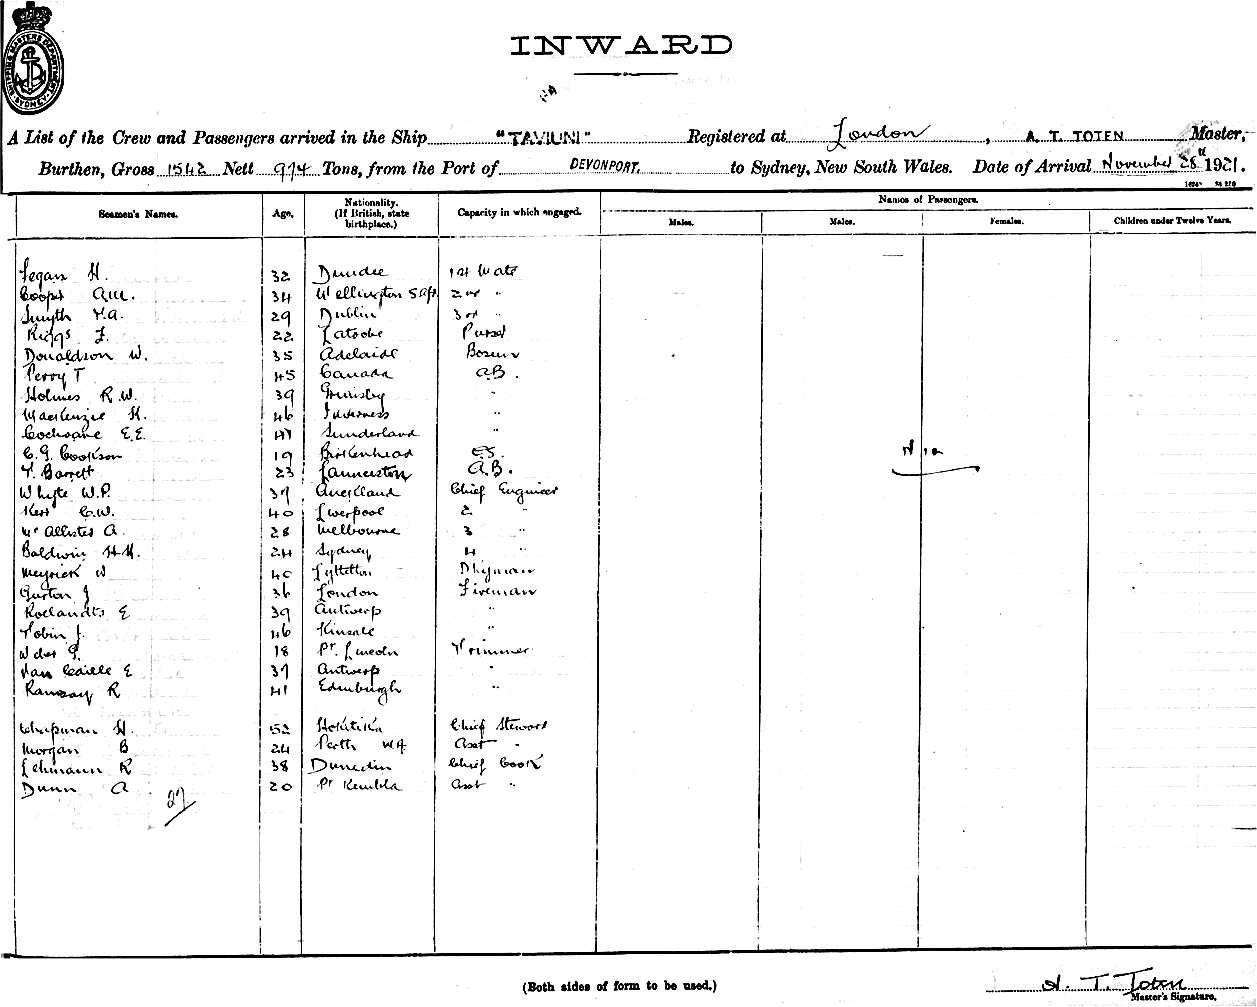 SHIPPING MASTERS DEPARTMENT SYDNEY
INWARD
A List of the Crew and Passengers arrived in the Ship "TAVIUNI" Registered at London, A. T. TOTEN Master,
Burthen, Gross 1542 Nett 974 Tons, from the Port of DEVONPORT, to Sydney, New South Wales. Date of Arrival November 28th 1921.
Seamen's Names. Age. Nationality. (If British, state birthplace.) Capacity in which engaged. Names of Passengers.
Males. Males. Females. Children under Twelve Years.
Fegan H. 32 Dundee 1st Mate
Cooper A.W. 34 Wellington S Af 2nd "
Smyth T.A. 29 Dublin 3rd "
Riggs F. 22 Purser
Donaldson W. 35 Adelaide Bosun
Perry T 45 Canada A.B.
Holmes R.W. 39 Grimsby "
MacKenzie H. 46 Inverness "
Cochrane E.E. 47 Sunderland "
C.G. Cookson 19 Birkenhead
T. Barrett 23 Launceston A.B.
Nil
Whyte W.P. 37 Auckland Chief Engineer
Kerr C.W. 40 Liverpool 2 "
McAllister A. 28 Melbourne 3 "
Baldwin H.H. 24 Sydney 4 "
Meyrick W 40 Lyttelton Dkyman
Gurton J 36 London Fireman
Roelandts E 39 Antwerp "
Tobin J. 46 Kinsale "
18 Pt. Lincoln Trimmer
Van Caille E 37 Antwerp "
Ramsay R 41 Edinburgh "
Chapman H. 52 Hokitika Chief Steward
Morgan B 24 Perth WA Asst "
Lehmann R 38 Dunedin Chief Cook
Dunn A 20 Pt Kembla Asst "
27
(Both sides of form to be used.)
A. T. Toten
Master's Signature.